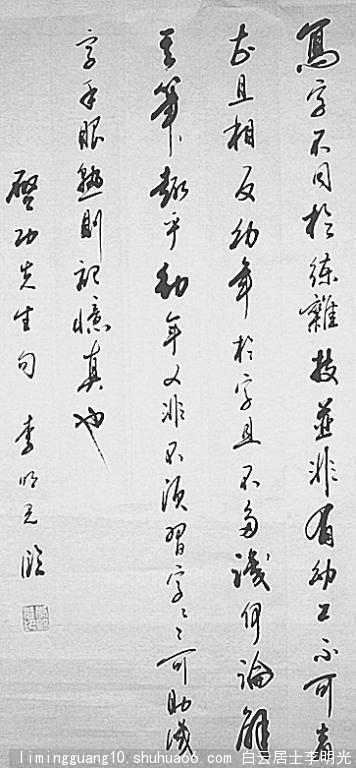 www.shuhuaoo.com
寫字不同於練雜技並非有幼工不可者
甚且相反幼年於字且不多識何論解
其筆趣乎幼年又非不須習字〻〻可助識
字手眼熟則記憶真也
啓功先生句 李明光臨
limingguang10.shuhuaoo.com 白云居士李明光